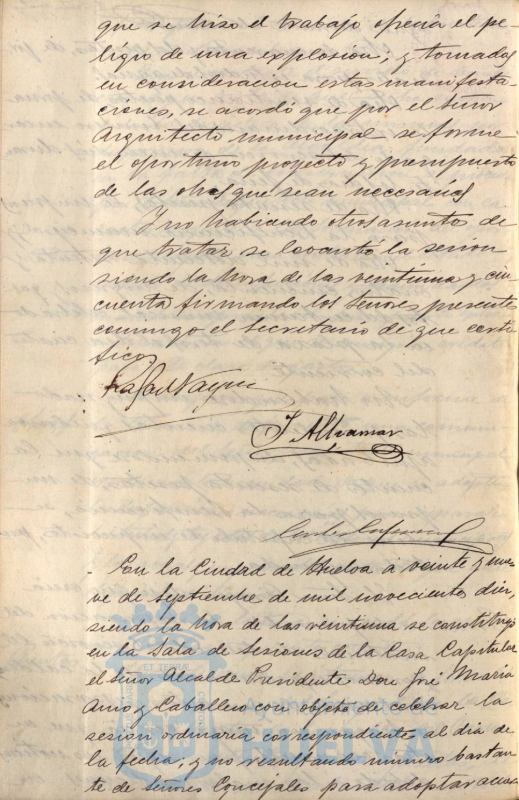 que se hizo el trabajo ofrecia el pe-
ligro de una explosion; y tomadas
en consideracion estas manifesta-
ciones, se acordó que por el Señor
Arquitecto municipal se forme
el oportuno proyecto y presupuesto
de las obras que sean necesarias
Y no habiendo otros asuntos de
que tratar se levantó la sesion
siendo la hora de las veintiuna y cin-
cuenta firmando los Señores presentes
conmigo el Secretario de que certi-
fico
Rafael
J. Alcazar
En la Ciudad de Huelva á veinte y nue-
ve de Septiembre de mil novecientos diez,
siendo la hora de las veintiuna se constituyó
en la Sala de Sesiones de la Casa Capitular
el Señor Alcalde Presidente Don José Maria
Amo y Caballero con objeto de celebrar la
sesion ordinaria correspondiente al dia de
la fecha; y no resultando número bastan-
te de Señores Concejales para adoptar acuer
HUELVA